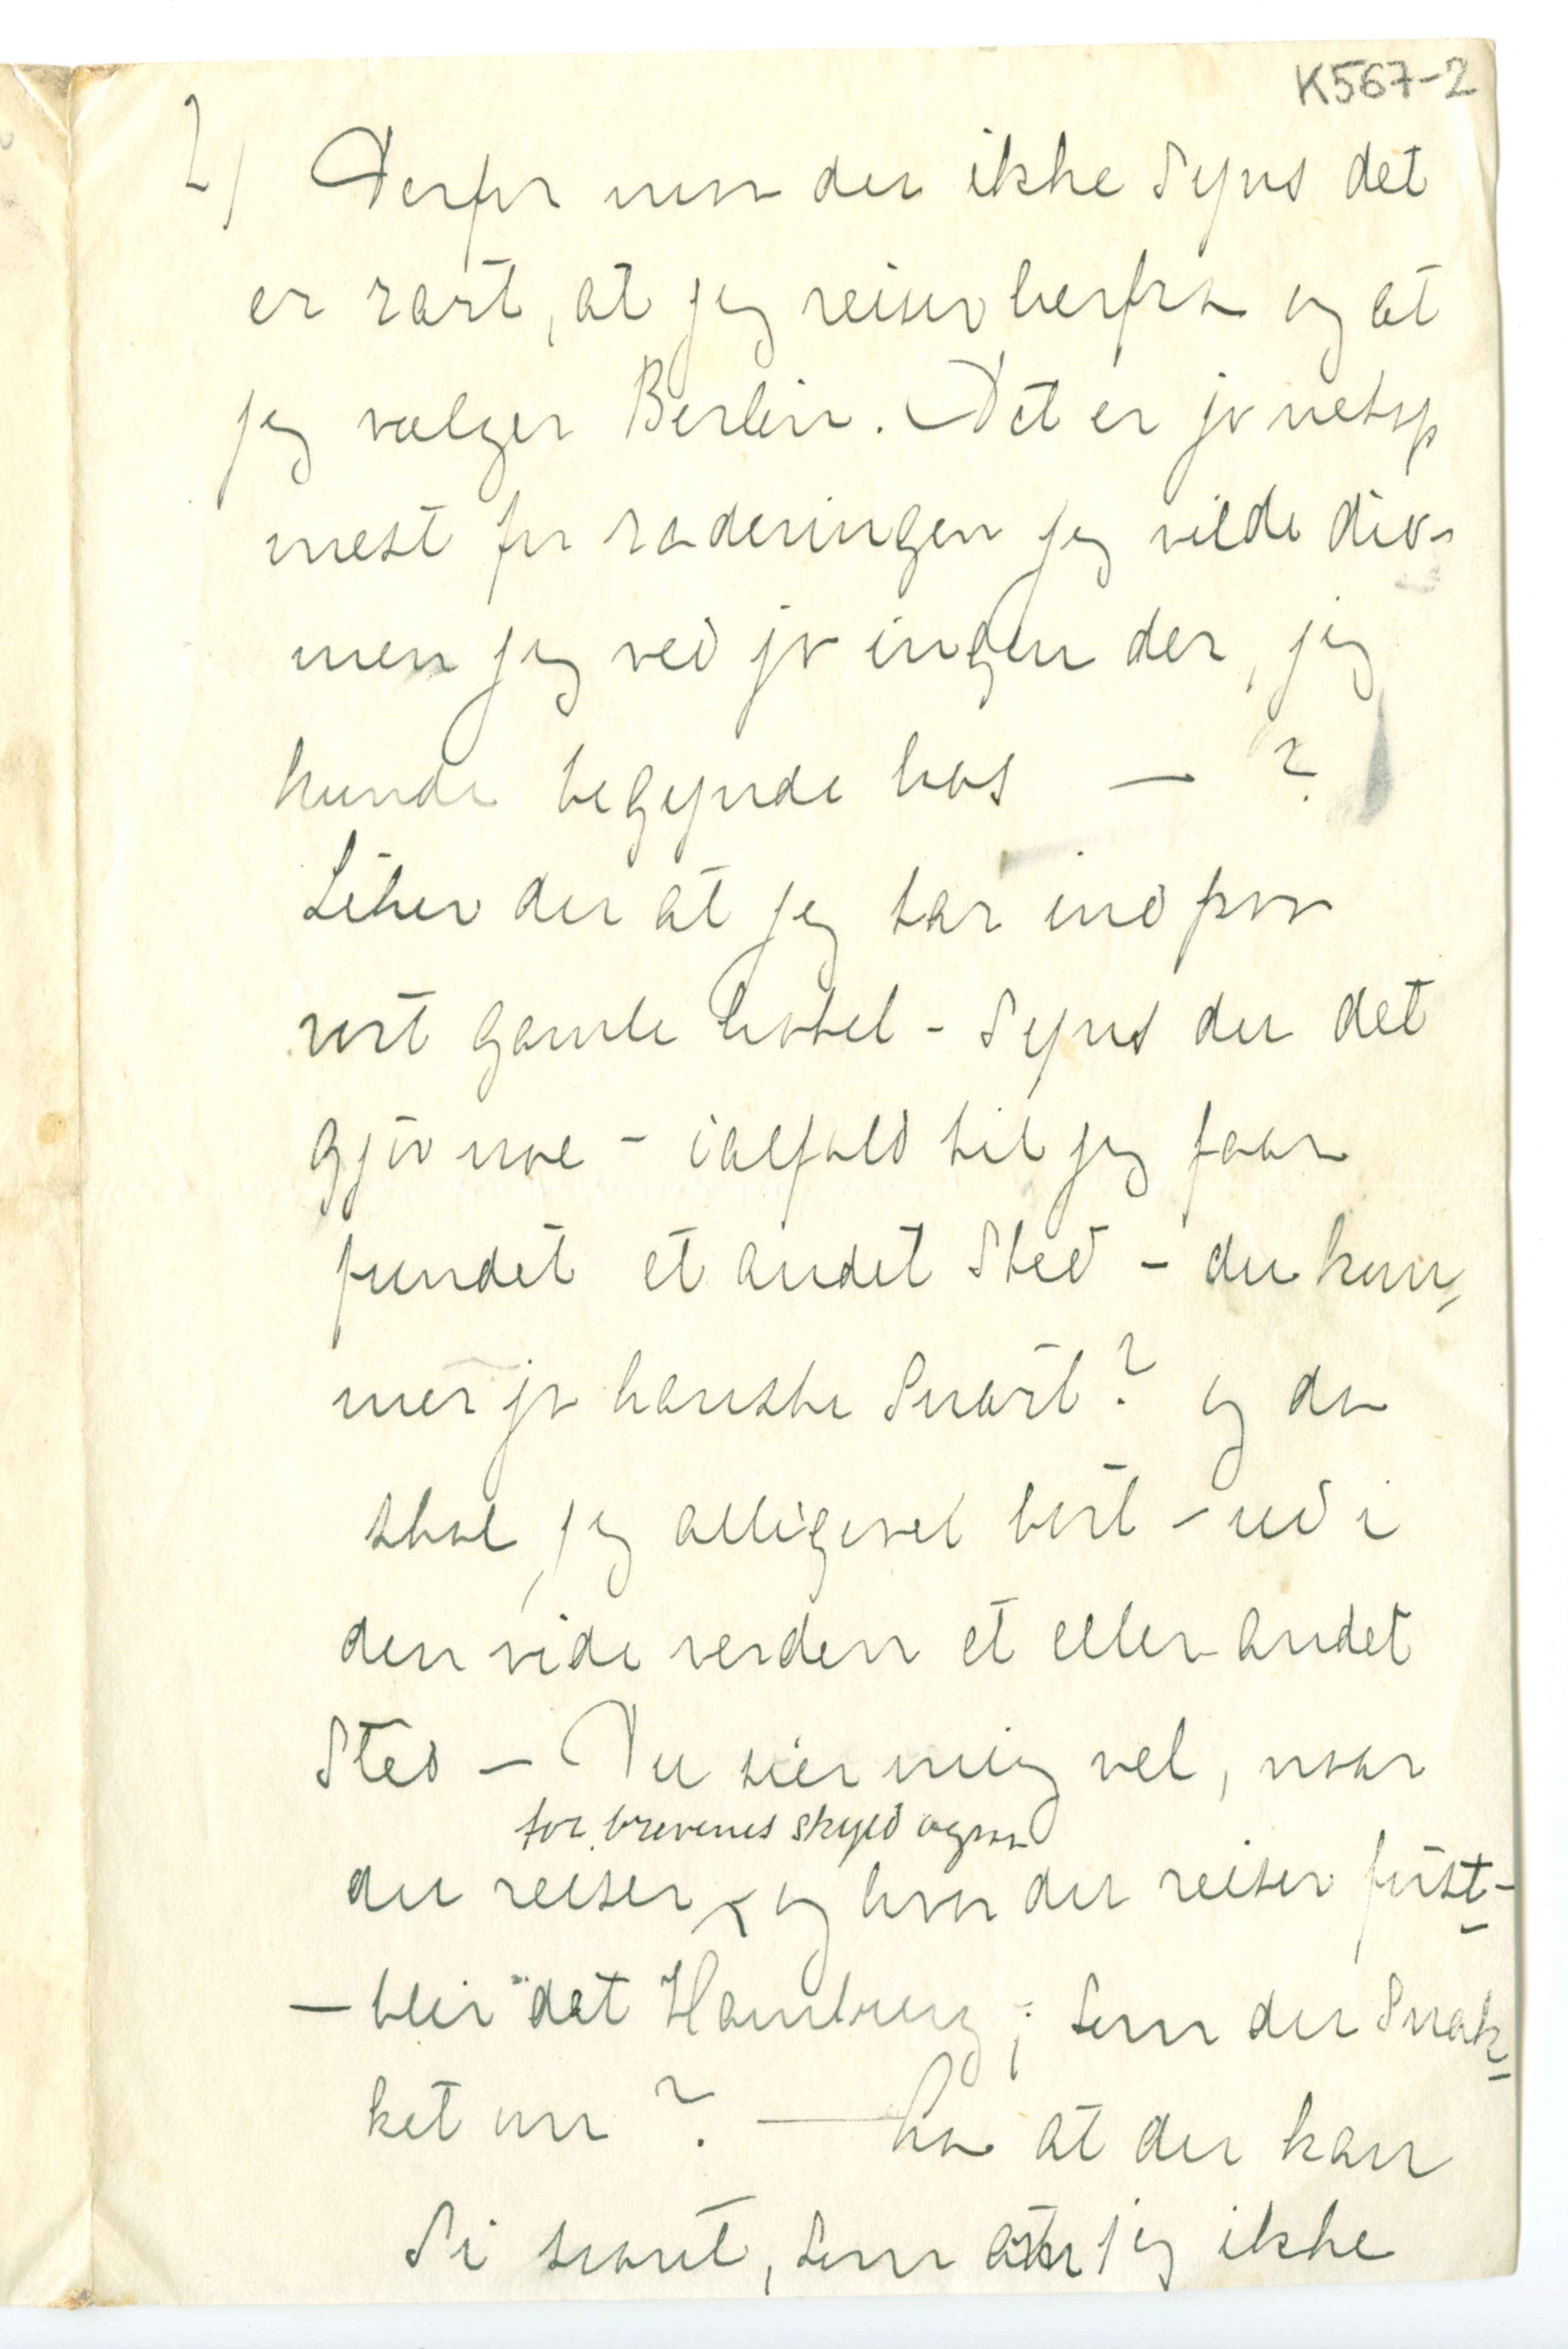 K567-2
2/ Derfor maa du ikke synes det
er rart, at jeg reiser herfra og at
jeg vælger Berlin. Det er jo netop
mest for raderingen jeg vilde did –
men jeg ved jo ingen der, jeg
kunde begynde hos — ?
Liker du at jeg tar ind paa
vort gamle hotel – synes du det
gjør noe – ialfald til jeg faar
fundet et andet sted – du kom,
mer jo kanske snart? og da
skal jeg alligevel bort – ud i
den vide verden et eller andet
sted – Du sier mig vel, naar
for brevenes skyld ogsaa
du reiser og hvor du reiser først –
– blir det Hamburg; som du snak,
ket om ? — Ha at du kan
si saant, som at jeg ikke